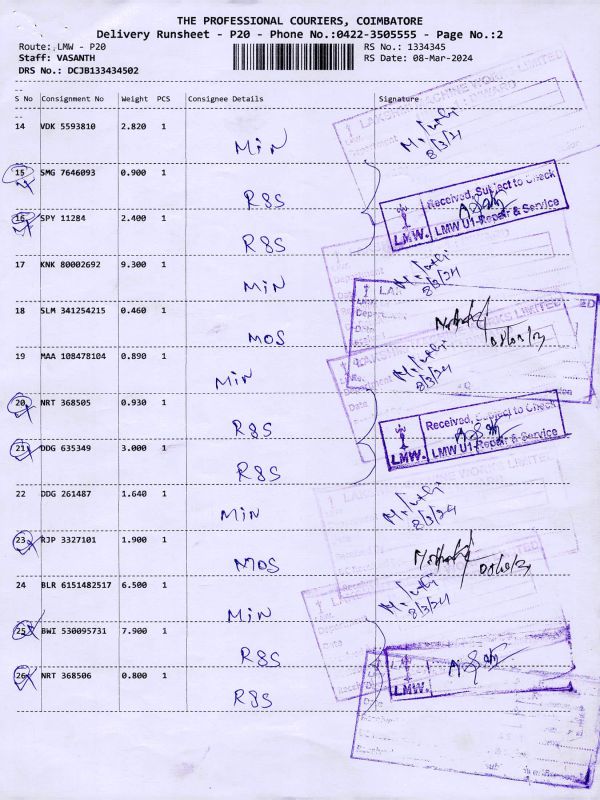 THE PROFESSIONAL COURIERS, COIMBATORE
Delivery Runsheet - P20 - Phone No.:0422-3505555 - Page No.:2
Route: LMW - P20
RS No.: 1334345
Staff: VASANTH
RS Date: 08-Mar-2024
DRS No.: DCJB133434502
--
S No Consignment No Weight PCS Consignee Details Signature
--
14 VDK 5593810 2.820 1 MiN 8/3/24
15 SMG 7646093 0.900 1 R&S
Received, Subject to Check
LMW. LMW U1-Repair & Service
16 SPY 11284 2.400 1 R&S
17 KNK 80002692 9.300 1 MiN 8/3/24
18 SLM 341254215 0.460 1 MOS
19 MAA 108478104 0.890 1 MiN 8/3/24
20 NRT 368505 0.930 1 R&S
Received, Subject to Check
LMW. LMW U1-Repair & Service
21 DDG 635349 3.000 1 R&S
22 DDG 261487 1.640 1 MiN 8/3/24
23 RJP 3327101 1.900 1 MOS
24 BLR 6151482517 6.500 1 MiN 8/3/24
25 BWI 530095731 7.900 1 R&S
LMW.
26 NRT 368506 0.800 1 R&S